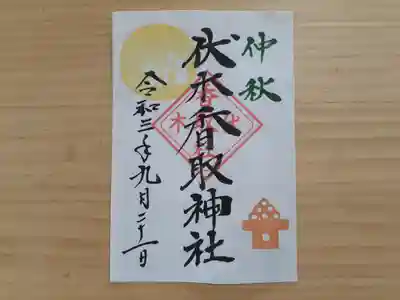 仲秋
伏木香取神社
令和三年九月二十一日